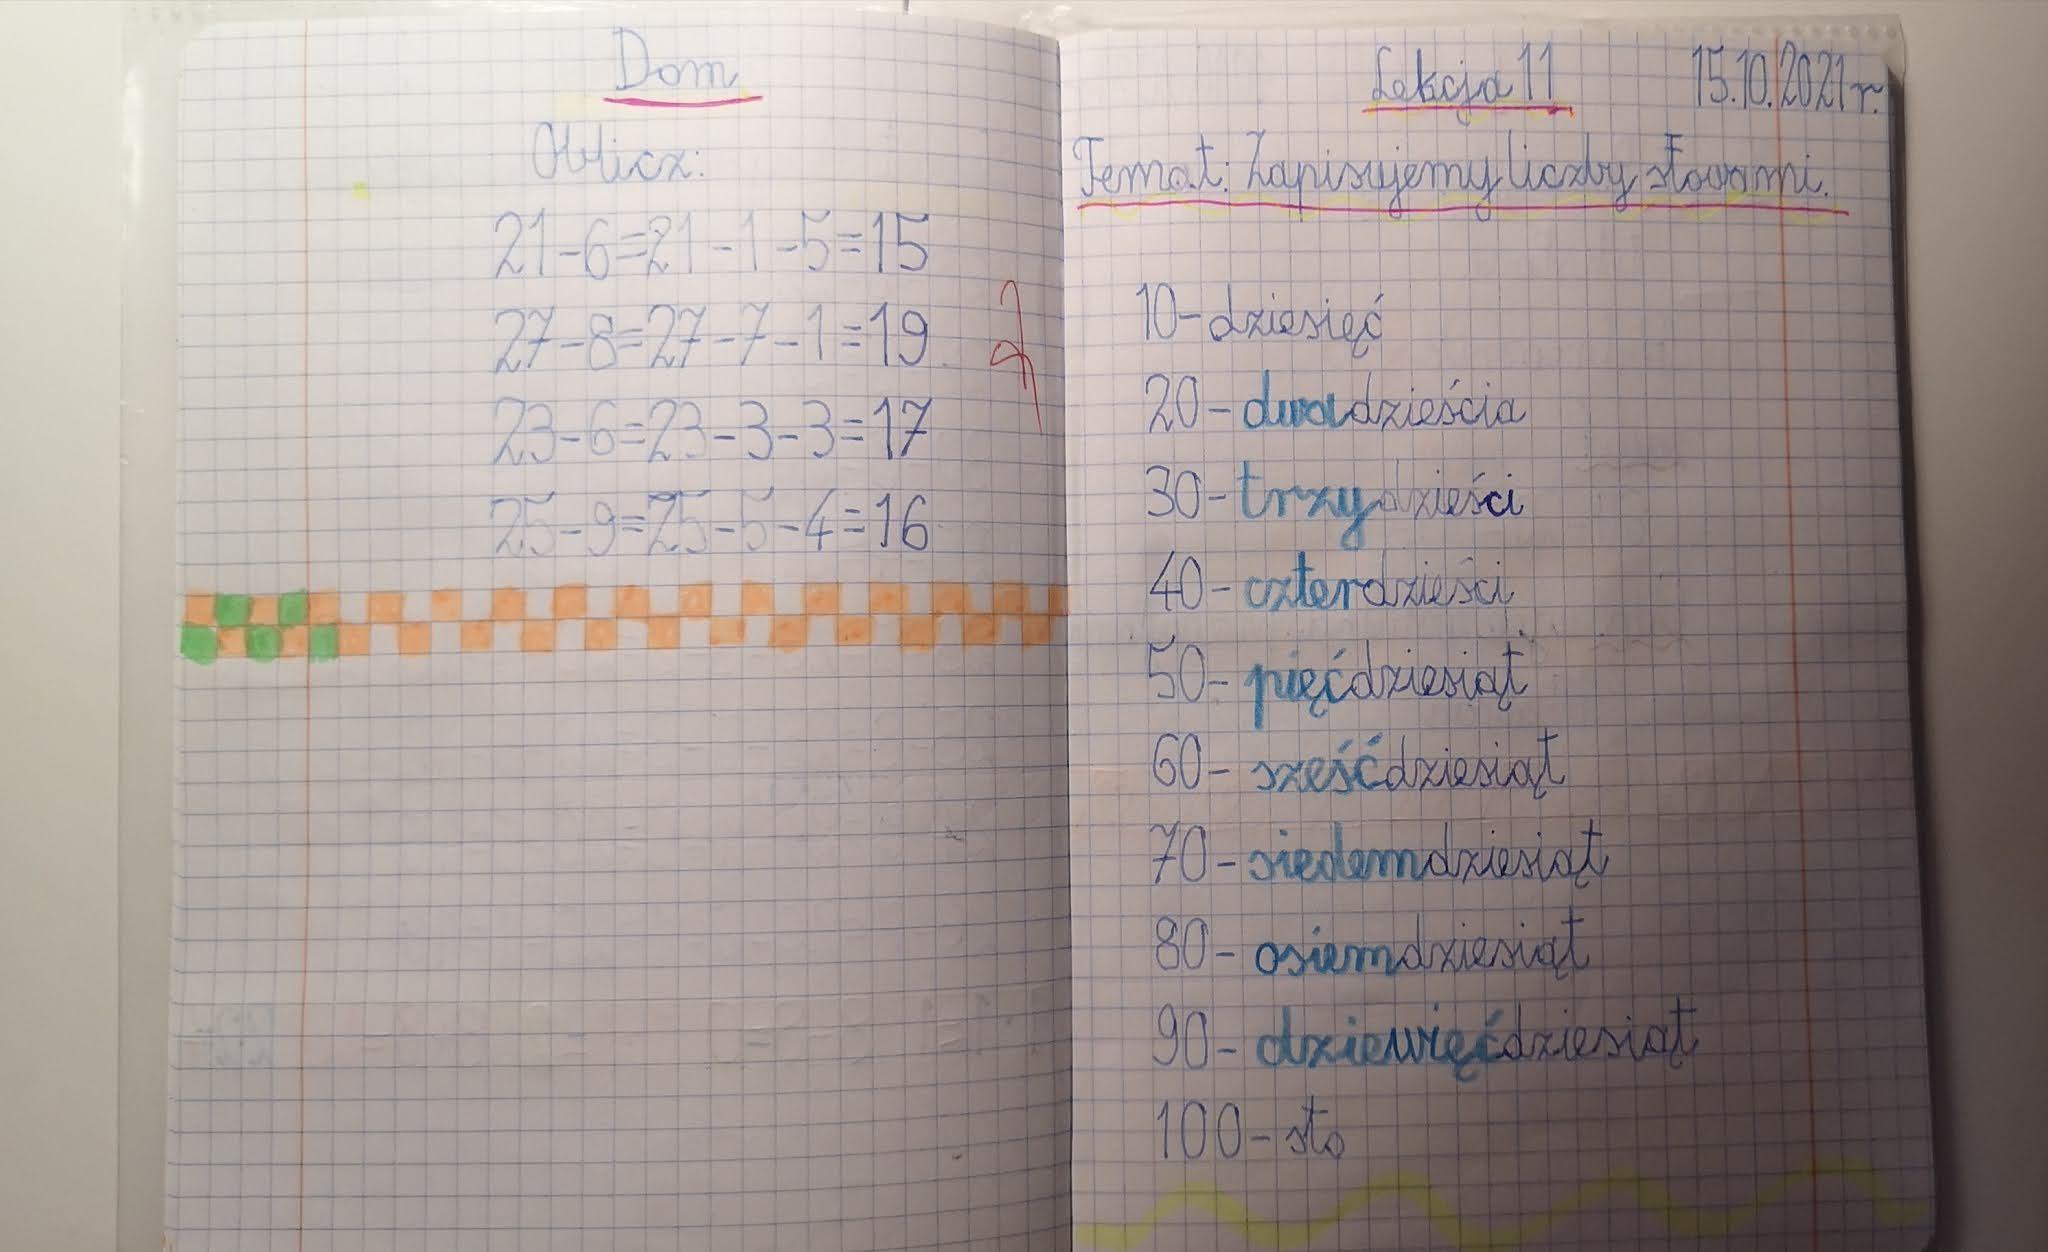 Dom
Oblicz:
21-6=21-1-5=15
27-8=27-7-1=19
23-6=23-3-3=17
25-9=25-5-4=16
Lekcja 11 15.10.2021 r.
Temat: Zapisujemy liczby słowami.
10-dziesięć
20-dwadzieścia
30-trzydzieści
40-czterdzieści
50-pięćdziesiąt
60-sześćdziesiąt
70-siedemdziesiąt
80-osiemdziesiąt
90-dziewięćdziesiąt
100-sto